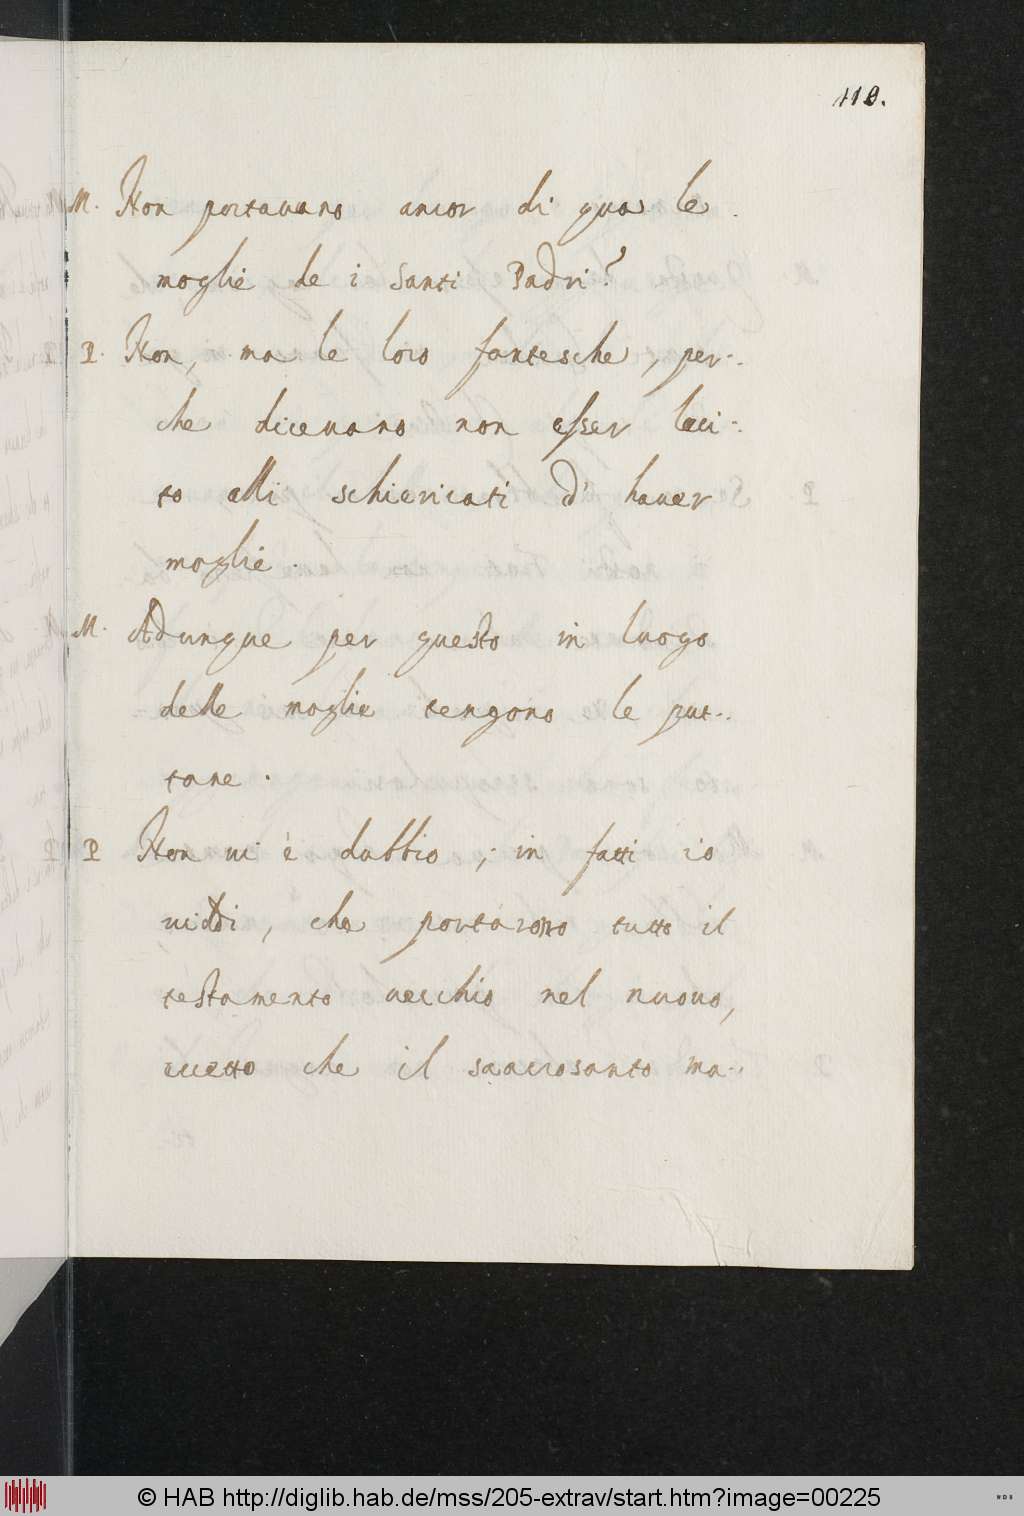 110.
M. Non portauano ancor di qua le
moglie de i Santi Padri?
P. Non, ma le loro fantesche, per-
che diceuano non esser leci-
to alli schiericati d' hauer
moglie.
M. Adunque per questo in luogo
delle moglie tengono le put-
tane.
P Non ui è dubbio; in fatti io
uiddi, che portarono tutto il
testamento uecchio nel nuouo,
eccetto che il saacrosanto ma-
© HAB http://diglib.hab.de/mss/205-extrav/start.htm?image=00225